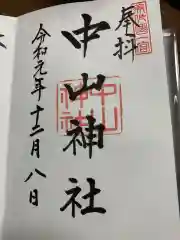 奉拝
中山神社
中山
神社
令和元年十二月八日